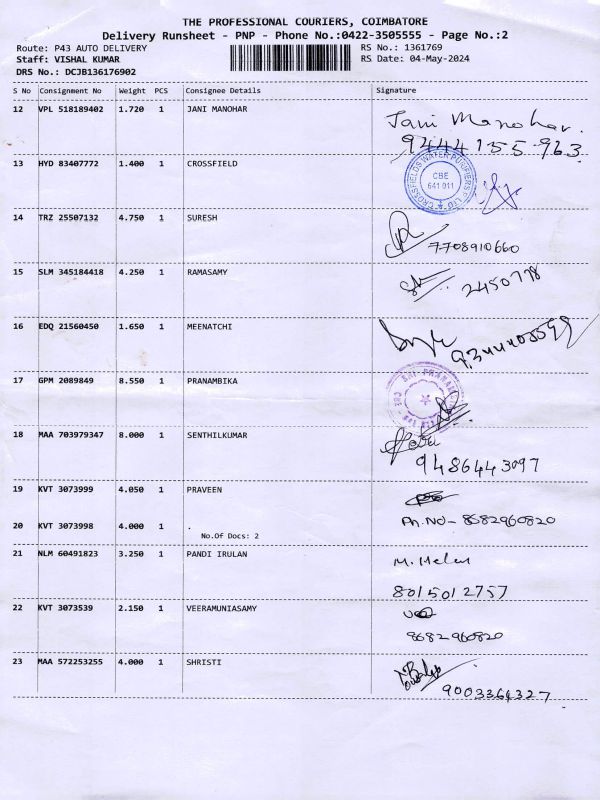 THE PROFESSIONAL COURIERS, COIMBATORE
Delivery Runsheet - PNP - Phone No.:0422-3505555 - Page No.:2
Route: P43 AUTO DELIVERY RS No.: 1361769
Staff: VISHAL KUMAR RS Date: 04-May-2024
DRS No.: DCJB136176902
S No Consignment No Weight PCS Consignee Details Signature
12 VPL 518189402 1.720 1 JANI MANOHAR Jani Manohar.
9444155963
13 HYD 83407772 1.400 1 CROSSFIELD
CROSSFIELDS WATER PURIFIERS P LTD
CBE
641 011
14 TRZ 25507132 4.750 1 SURESH
7708910660
15 SLM 345184418 4.250 1 RAMASAMY
2450778
16 EDQ 21560450 1.650 1 MEENATCHI
17 GPM 2089849 8.550 1 PRANAMBIKA
18 MAA 703979347 8.000 1 SENTHILKUMAR
9486443097
19 KVT 3073999 4.050 1 PRAVEEN
20 KVT 3073998 4.000 1 . Ph.NO- 8682960820
No.Of Docs: 2
21 NLM 60491823 3.250 1 PANDI IRULAN M. Helen
8015012757
22 KVT 3073539 2.150 1 VEERAMUNIASAMY
8682960820
23 MAA 572253255 4.000 1 SHRISTI
9003364327